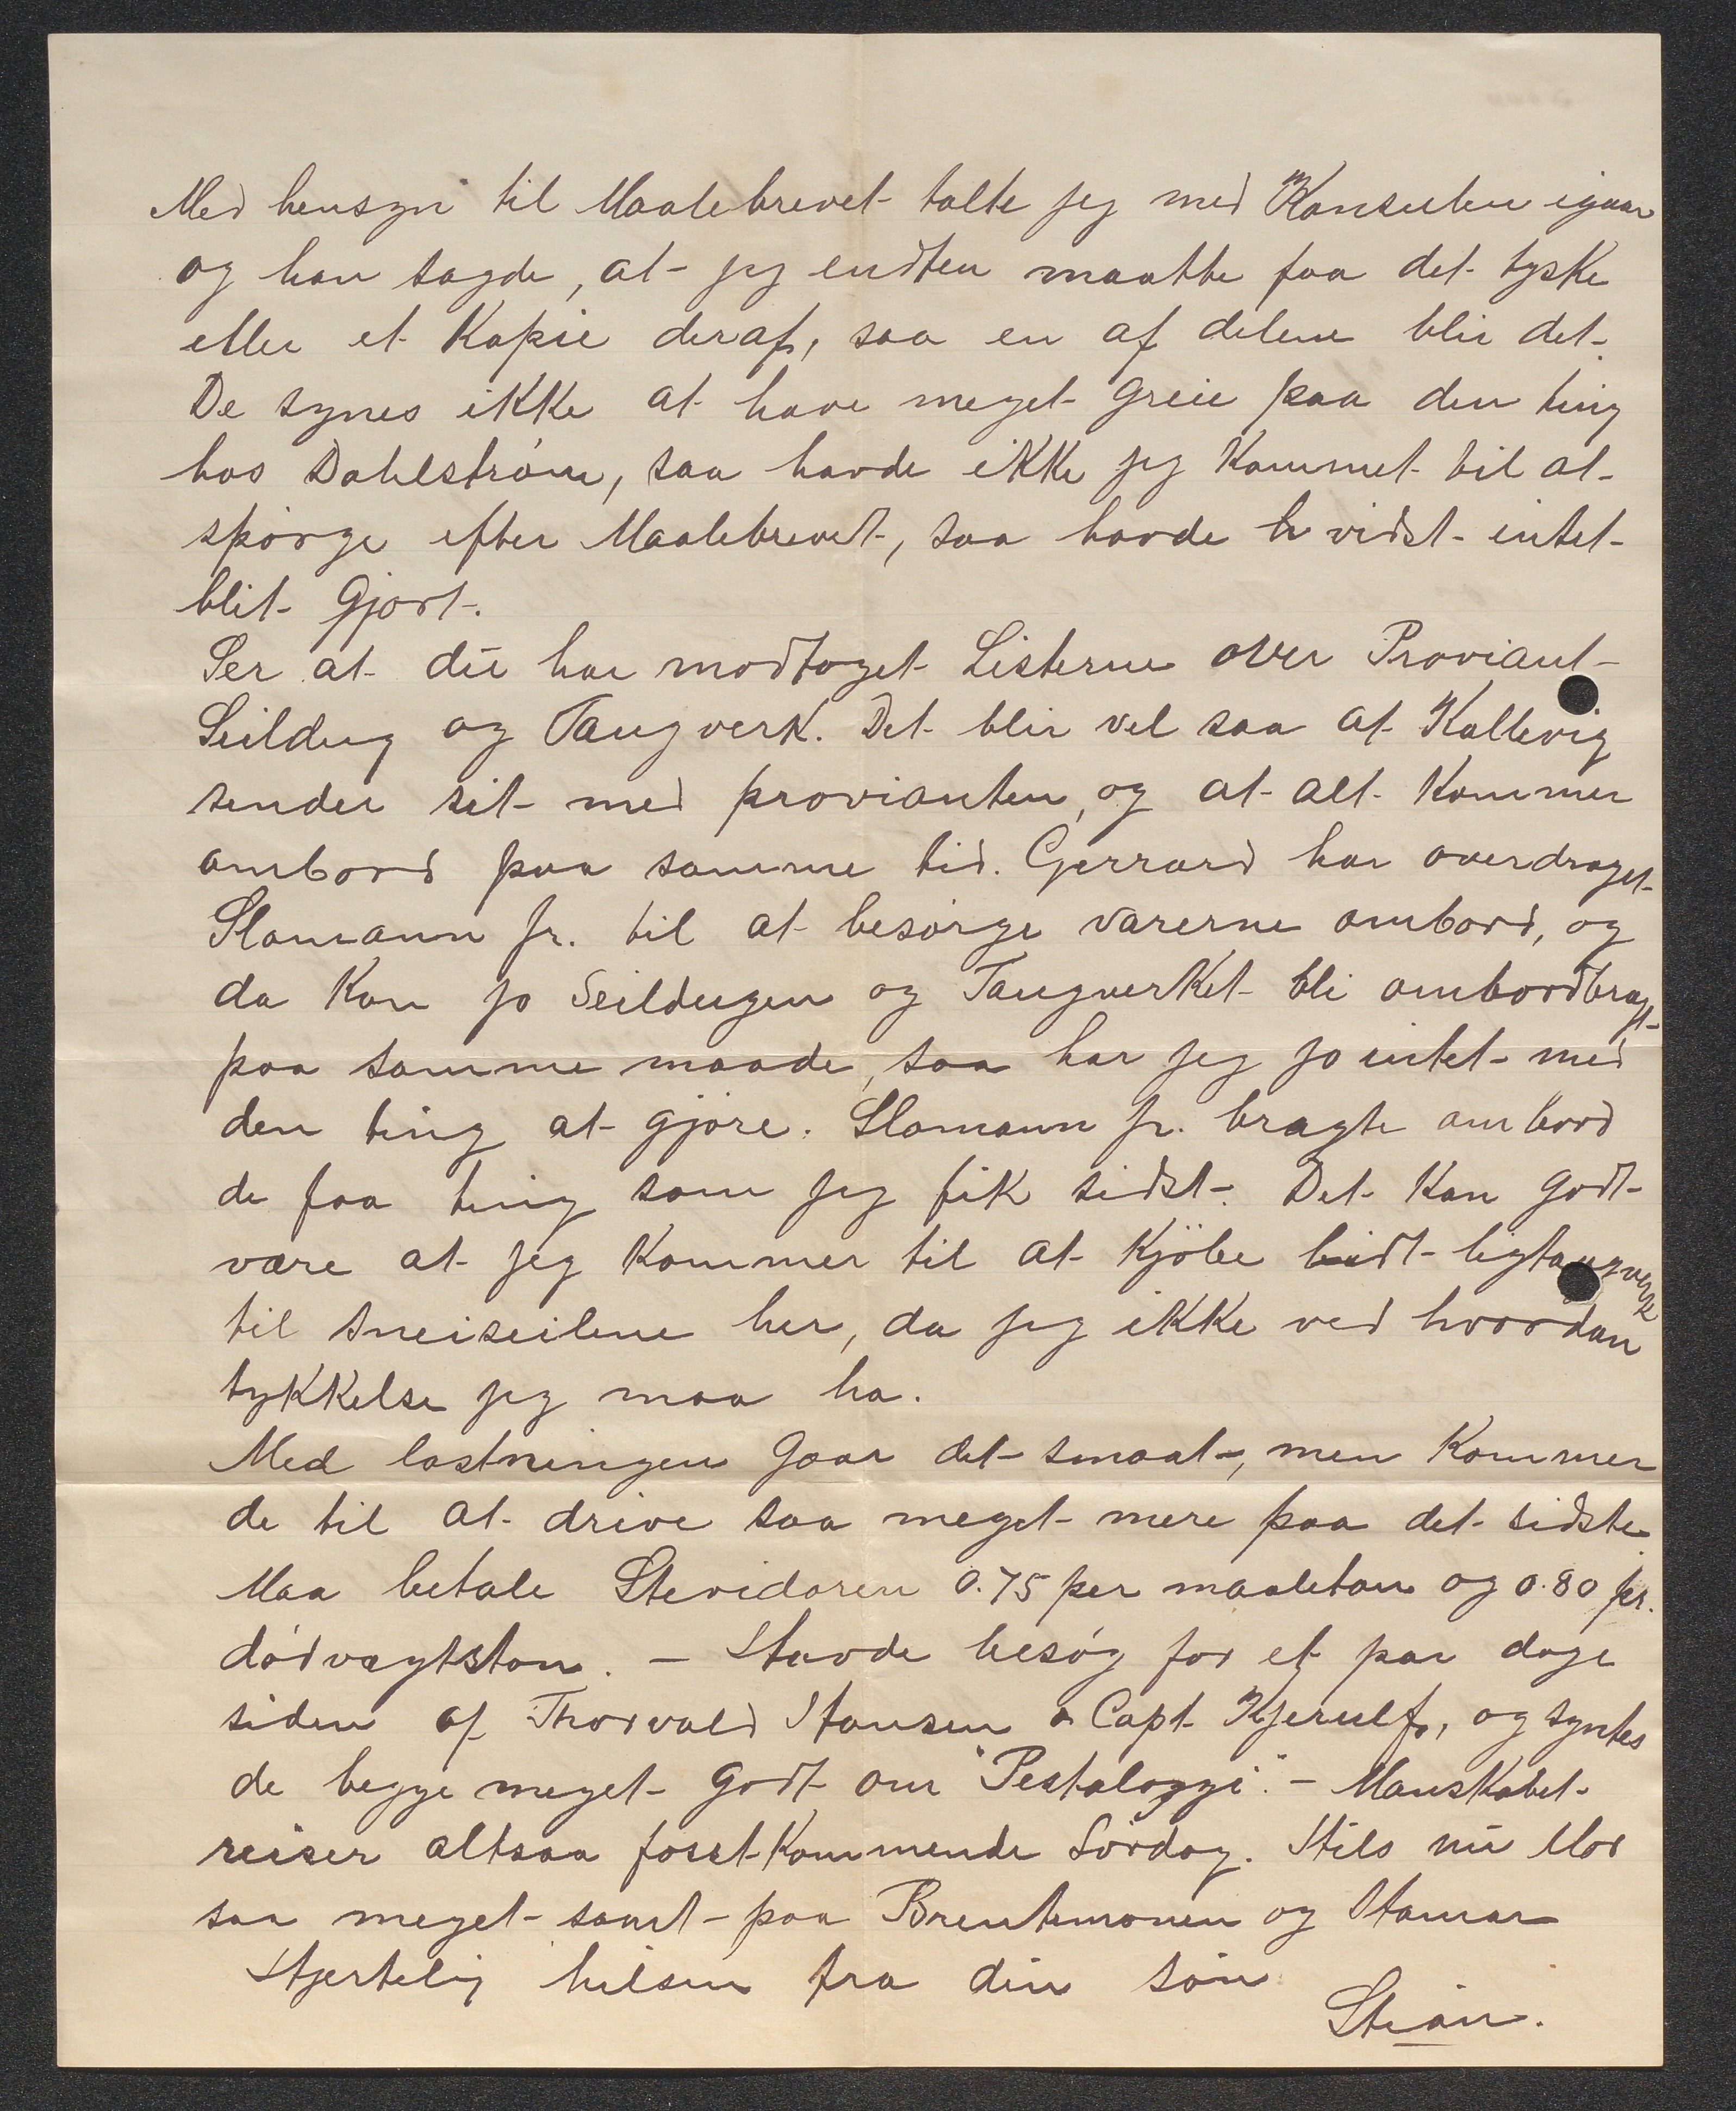 Med hensyn til Maalebrevet talte jeg med Konsulen igaar
og han sagde, at jeg endten maatte faa det tyske
eller et Kopie deraf, saa en af delene blir det.
De synes ikke at have meget greie paa den ting
hos Dahlström, saa havde ikke jeg kommet til at
spörge efter Maalebrevet, saa havde vidst intet
blit gjort.
Ser at du har modtaget Listerne over Proviant
Seildug og Taugverk. Det blir vel saa at Kallevig
sender sit med provianten, og at alt kommer
ombord paa samme tid. Gerrard har overdraget
Slomann jr. til at besörge varerne ombord, og
da kan jo Seildugen og Taugverket bli ombordbragt
paa samme maade, saa har jeg jo intet med
den ting at gjöre. Slomann jr. bragte ombord
de faa ting som jeg fik sidst. Det kan godt
være at jeg kommer til at kjöbe lidt ligtaugverk
til sneiseilene her, da jeg ikke ved hvordan
tykkelse jeg maa ha.
Med lastningen gaar det smaat, men kommer
de til at drive saa meget mere paa det sidste.
Maa betale Stevidoren 0.75 per maaleton og 0.80 pr.
dödvægtston. – Havde besög for et par dage
siden af Thorvald Hansen & Capt. Kjerulf, og syntes
de begge meget godt om "Pestalozzi". – Manskabet
reiser altsaa förstkommende Lördag. Hils nu Mor
saa meget samt paa Brentemoen og Hamar
Hjertelig hilsen fra din sön
Stian.